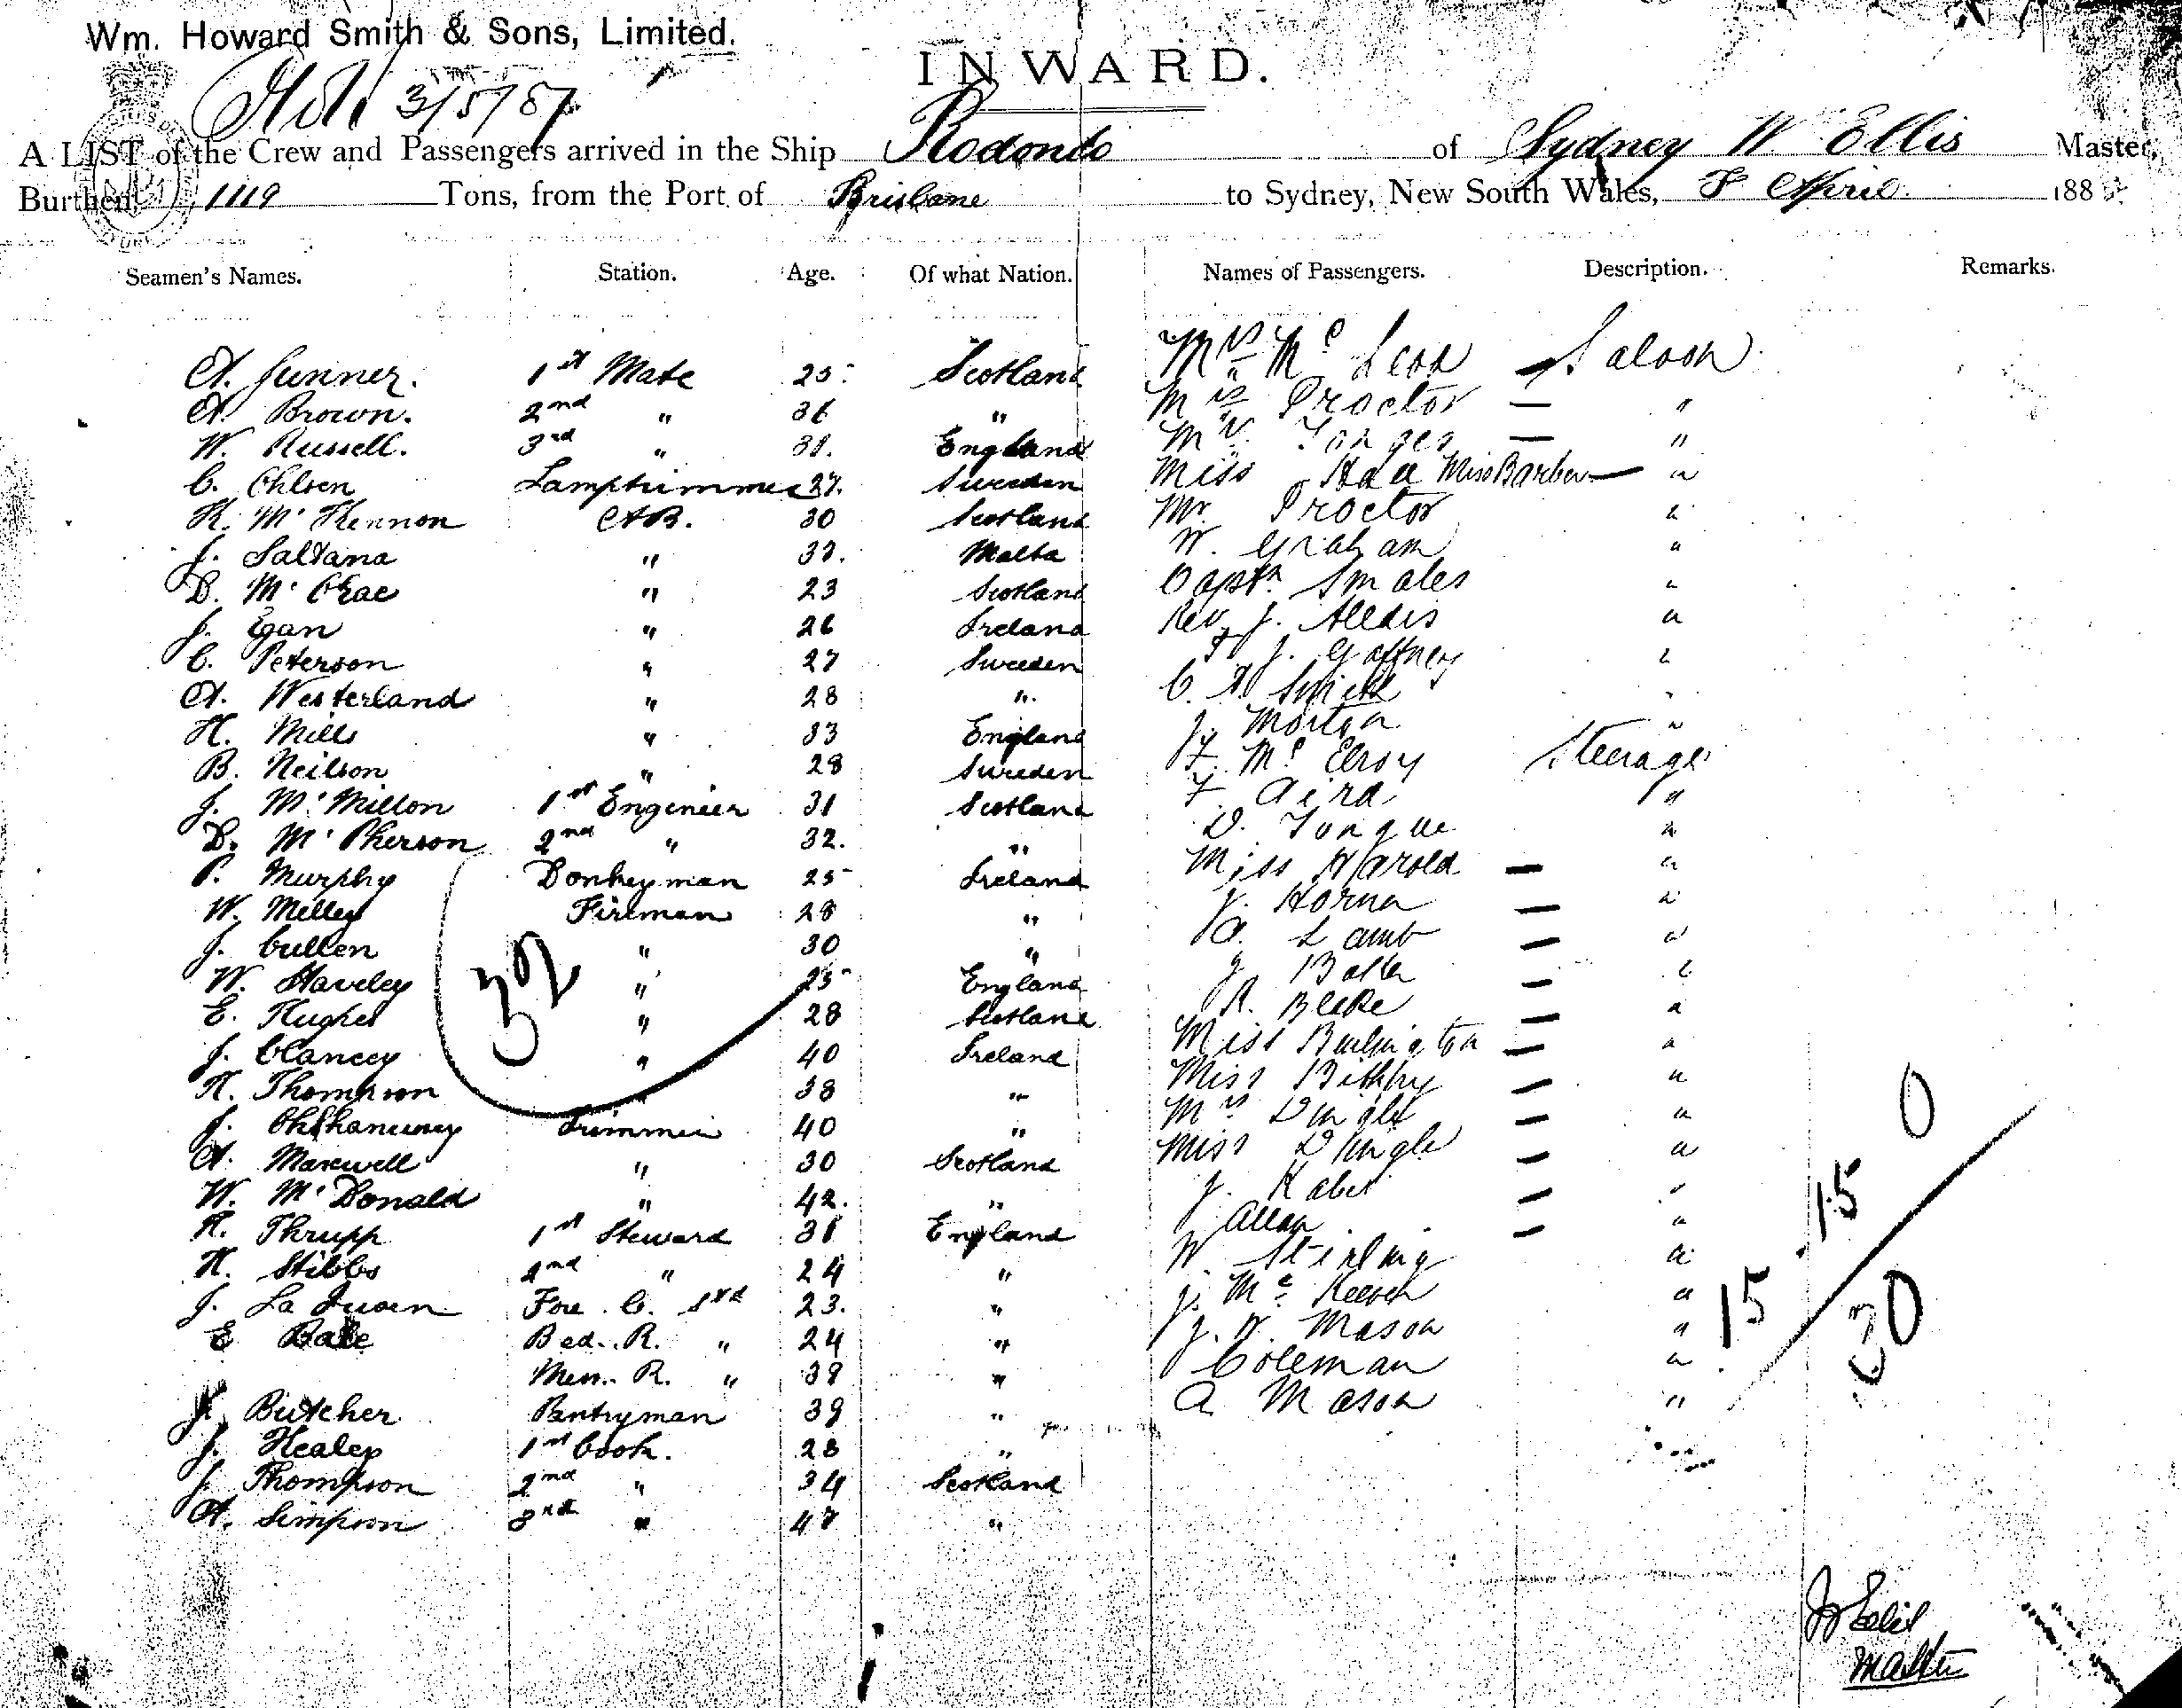 Wm. Howard Smith & Sons, Limited.
INWARD.
3/5/87
A LIST of the Crew and Passengers arrived in the Ship Rodondo of Sydney W Ellis Master,
Burthen 1119 Tons, from the Port of Brisbane to Sydney, New South Wales, April 188
Seamen's Names. Station. Age. Of what Nation. Names of Passengers. Description. Remarks.
A. Gunner. 1st Mate 25 Scotland
A. Brown. 2nd " 36 "
W. Russell. 3rd " 31. England
C. Ohlsen Lamptrimmer 27. Sweden
R. Mc Kennon A.B. 30 Scotland
J. Saltana " 32. Malta
D. Mc Crae " 23 Scotland
J. Egan " 26 Ireland
C. Peterson " 27 Sweden
A. Westerland " 28 "
H. Mills " 33 England
B. Neilson " 28 Sweden
J. Mc Millon 1st Engineer 31 Scotland
D. Mc Pherson 2nd " 32. "
P. Murphy Donkeyman 25 Ireland
W. Melley Fireman 28 "
J. Cullen " 30 "
W. Staveley " 25 England
E. Hughes " 28 Scotland
J. Clancey " 40 Ireland
H. Thompson " 38 "
J. Trimmer 40 "
A. Maxwell " 30 Scotland
W. Mc Donald " 42. "
H. Thrupp 1st Steward 31 England
H. Stibbs 2nd " 24 "
J. Fore. C. Std 23. "
E Bale Bed. R. " 24 "
Mess. R. " 39 "
J. Butcher Pantryman 39 "
J. Healey 1st Cook. 28 "
J. Thompson 2nd " 34 Scotland
A. Simpson 3rd " 47 "
32
Mrs Mc Leod — Saloon
Mrs Proctor — "
Mrs — "
Miss Miss Barber — "
Mr Proctor "
W. Graham "
Captn Smales "
Rev. J. "
J. Gaffney "
C. A. Smith "
J. Morton "
F. Mc Elroy Steerage
F. Aird "
D. Tongue "
Miss Harold — "
J. Horne — "
A. Lamb — "
J. — "
R. Blake — "
Miss — "
Miss — "
Mrs Dingle — "
Miss Dingle — "
J. — "
Allan — "
W Stirling "
J. Mc "
J. W. Mason "
Coleman "
A Mason "
0
15
15
30
Ellis
Master